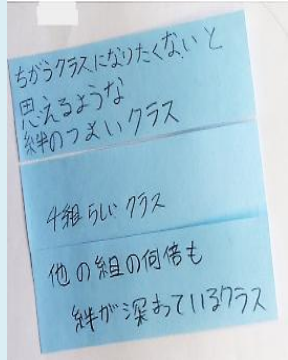 ちがうクラスになりたくないと
思えるような
絆のつよいクラス
4組らしいクラス
他の組の何倍も
絆が深まっているクラス